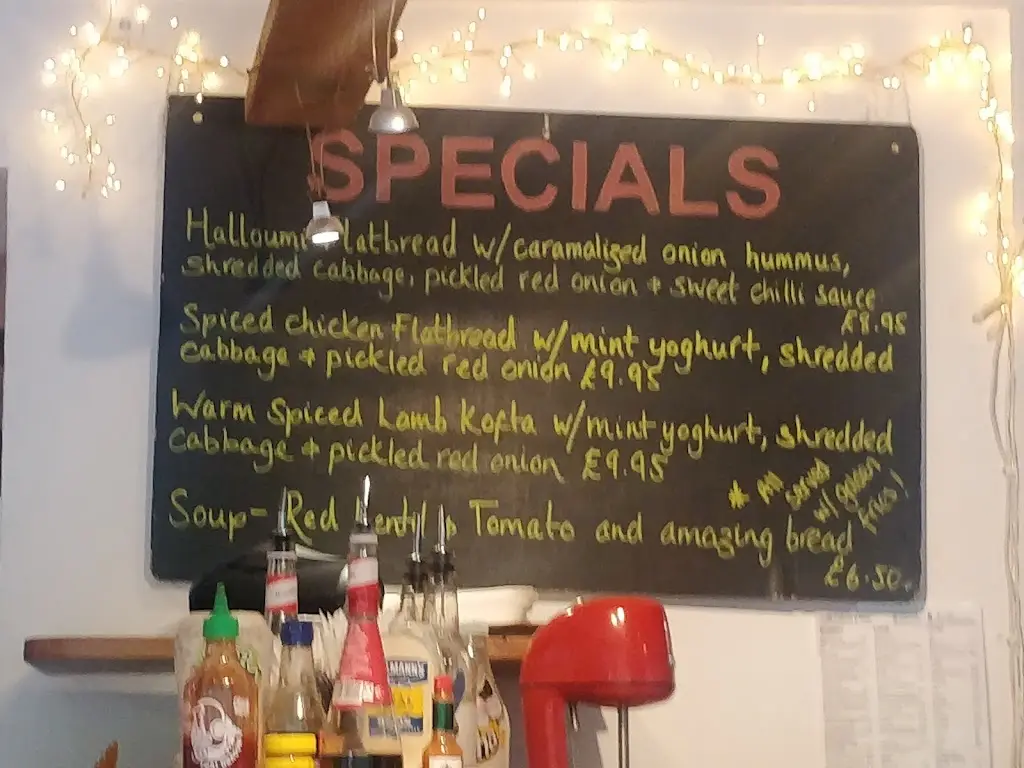 SPECIALS
Halloumi Flatbread w/caramalized onion hummus,
shredded cabbage, pickled red onion + sweet chilli sauce
£8.95
Spiced chicken Flatbread w/mint yoghurt, shredded
cabbage + pickled red onion £9.95
Warm Spiced Lamb Kofta w/mint yoghurt, shredded
cabbage + pickled red onion £9.95
* All
served
w/
fries!
Soup- Red Lentil + Tomato and amazing bread
£6.50.